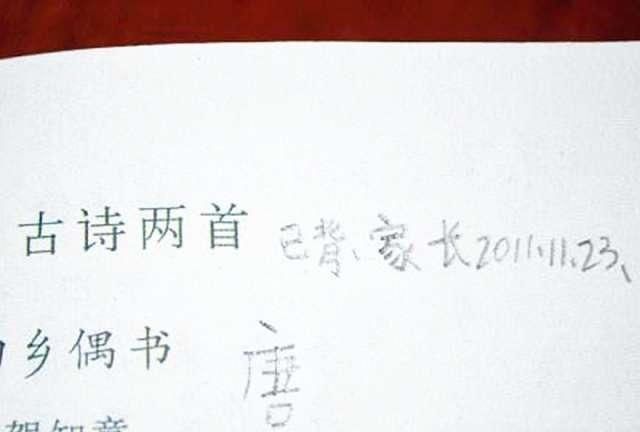 古诗两首 已背、家长2011.11.23、
乡偶书 唐
贺知章